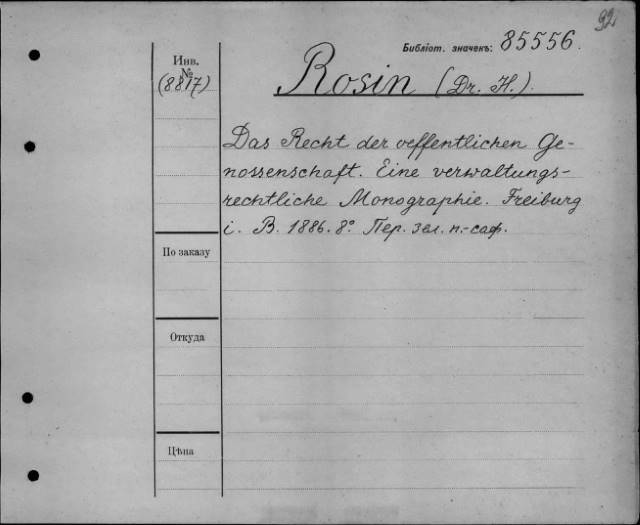 92
Библіот. значекъ: 85556.
Инв.
№
(8817)
Rosin (Dr. H.).
Das Recht der oeffentlichen Ge-
nossenschaft. Eine verwaltungs-
rechtliche Monographie. Freiburg
i. B. 1886. 8°. Пер. зел. п.-саф.
По заказу
Откуда
Цѣна